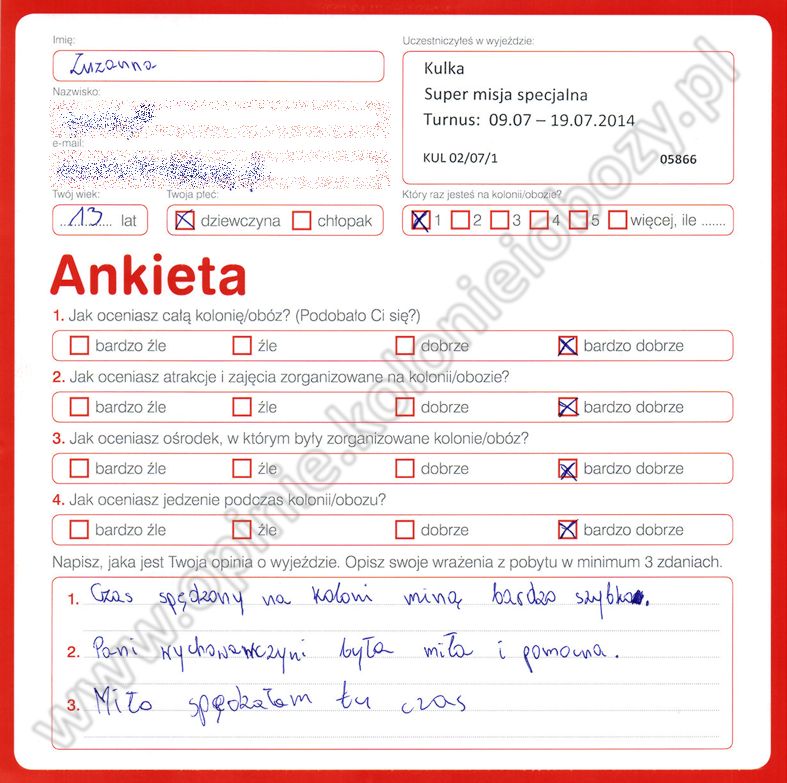 Imię:
Zuzanna
Nazwisko:
e-mail:
Twój wiek:
13 lat
Twoja płeć:
dziewczyna chłopak
Uczestniczyłeś w wyjeździe:
Kulka
Super misja specjalna
Turnus: 09.07 – 19.07.2014
KUL 02/07/1 05866
Który raz jesteś na kolonii/obozie?
1 2 3 4 5 więcej, ile .......
Ankieta
1. Jak oceniasz całą kolonię/obóz? (Podobało Ci się?)
bardzo źle źle dobrze bardzo dobrze
2. Jak oceniasz atrakcje i zajęcia zorganizowane na kolonii/obozie?
bardzo źle źle dobrze bardzo dobrze
3. Jak oceniasz ośrodek, w którym były zorganizowane kolonie/obóz?
bardzo źle źle dobrze bardzo dobrze
4. Jak oceniasz jedzenie podczas kolonii/obozu?
bardzo źle źle dobrze bardzo dobrze
Napisz, jaka jest Twoja opinia o wyjeździe. Opisz swoje wrażenia z pobytu w minimum 3 zdaniach.
1. Czas spędzony na koloni miną bardzo szybko.
2. Pani wychowawczyni była miła i pomocna.
3. Miło spędzałam tu czas
www.opinie.kolonieiobozy.pl